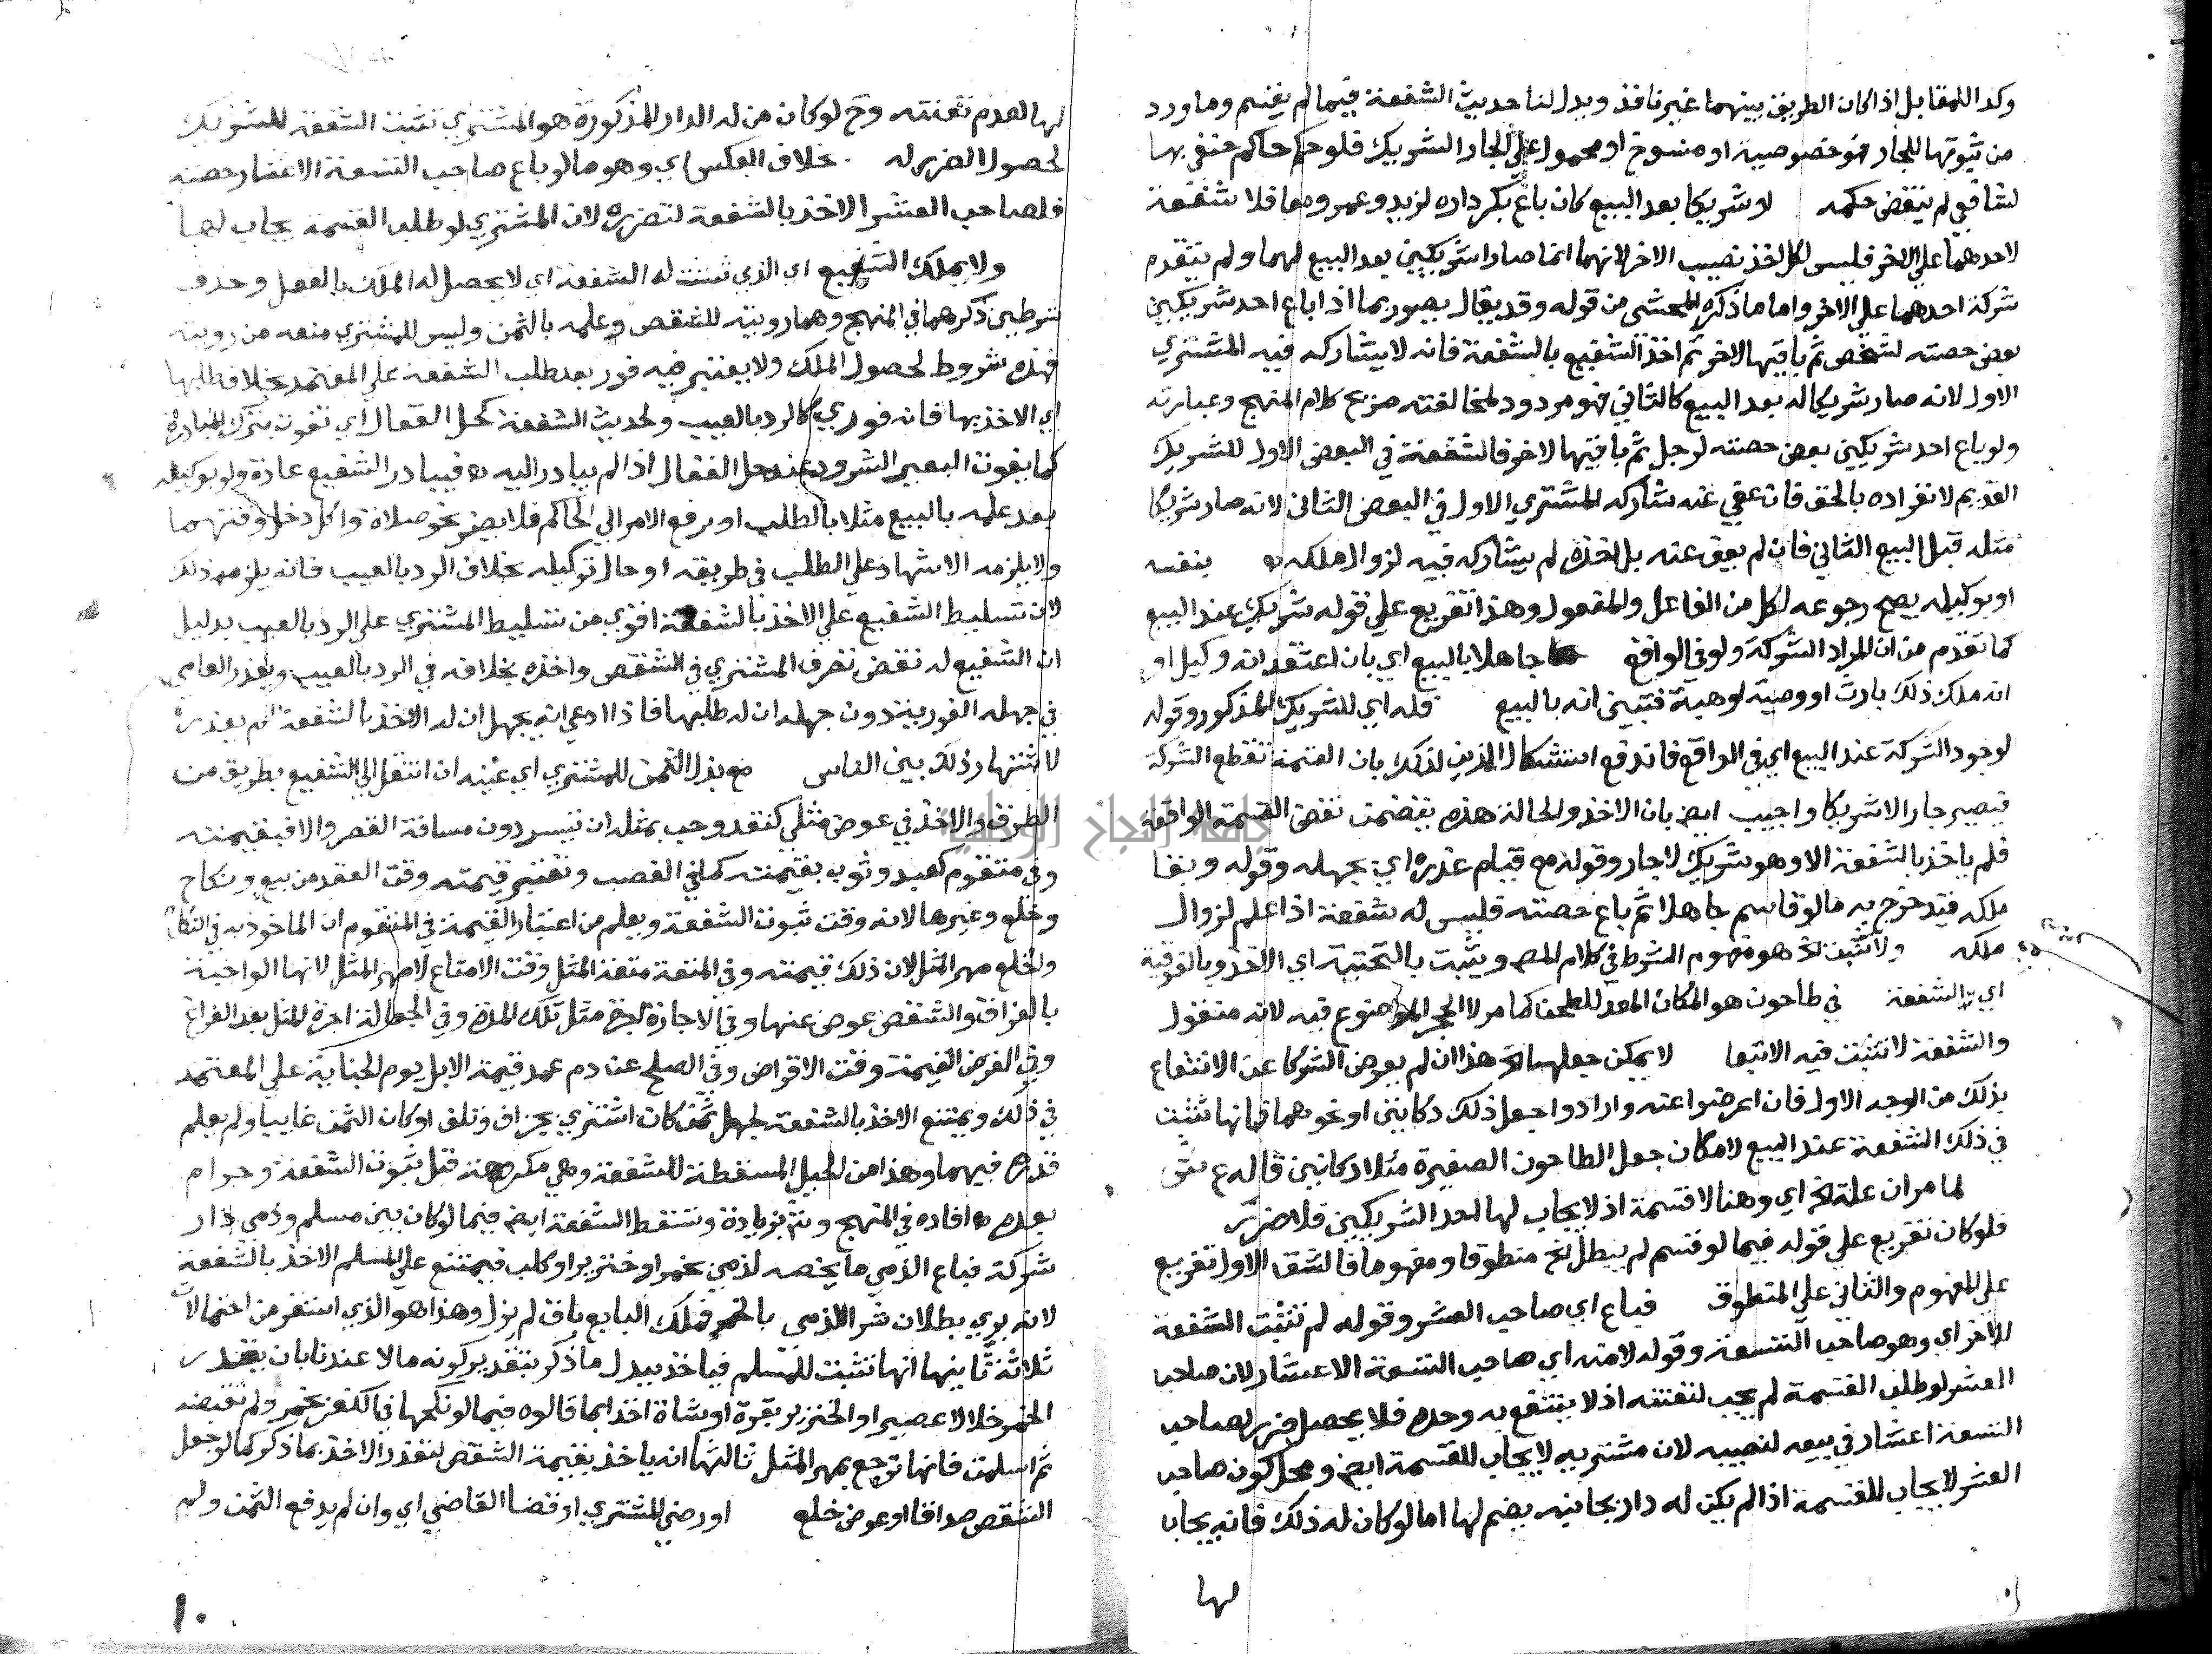 وكذا المقابل اذا كان الطريق بينهما غير نافذ ويدل لنا حديث الشفعة فيما لم يقسم وما ورد
من ثبوتها للجار فهو خصوصية او منسوخ او محمول علي الجار الشريك فلو حكم حاكم حنفي بها
لشافعي لم ينقض حكمه لا شريكا بعد البيع كان باع بكر داره لزيد وعمرو معا فلا شفعة
لاحدهما علي الاخر فليس لكل اخذ نصيب الاخر لانهما انما صارا شريكين بعد البيع لهما ولم يتقدم
شركة احدهما علي الاخر واما ما ذكره المحشي من قوله وقد يقال يصور بما اذا باع احد شريكين
بعض حصته لشخص ثم باقيها لاخر ثم اخذ الشفيع بالشفعة فانه لا يشاركه فيه المشتري
الاول لانه صار شريكا له بعد البيع كالثاني فهو مردود لمخالفته صريح كلام المنهج وعبارته
ولو باع احد شريكين بعض حصته لرجل ثم باقيها لاخر فالشفعة في البعض الاول للشريك
القديم لانفراده بالحق فان عفي عنه شاركه المشتري الاول في البعض الثاني لانه صار شريكا
مثله قبل البيع الثاني فان لم يعف عنه بل اخذه لم يشاركه فيه لزوال ملكه ه بنفسه
او بوكيله يصح رجوعه لكل من الفاعل والمفعول وهذا تفريع علي قوله شريك عند البيع
كما تقدم من ان المراد الشركة ولو في الواقع جاهلا بالبيع اي بان اعتقد انه وكيل او
انه ملك ذلك بارث او وصية او هبة فتبين انه بالبيع فله اي للشريك المذكور وقوله
لوجود الشركة عند البيع اي في الواقع فاندفع استشكال المزني لذلك بان القسمة تقطع الشركة
فيصير جارا لا شريكا واجيب ايض بان الاخذ والحالة هذه يتضمن نقض القسمة الواقعة
فلم ياخذ بالشفعة الا وهو شريك لا جار وقوله مع قيام عذره اي بجهله وقوله وبقا
ملكه قيد خرج به ما لو قاسم جاهلا ثم باع حصته فليس له شفعة اذا علم لزوال
ملكه ولا تثبت الخ هو مفهوم الشرط في كلام المص ويثبت بالتحتية اي الاخذ وبالفوقية
اي الشفعة في طاحون هو المكان المعد للطحن كما مر لا الحجر الموضوع فيه لانه منقول
والشفعة لا تثبت فيه الا تبعا لا يمكن جعلها الخ هذا ان لم يعرض الشركا عن الانتفاع
بذلك من الوجه الاول فان اعرضوا عنه وارادوا جعل ذلك دكانين او نحوهما فانها تثبت
في ذلك الشفعة عند البيع لامكان جعل الطاحون الصغيرة مثلا دكانين قاله ع ش
لما مر ان علة الخ اي وهنا لا قسمة اذ لا يجاب لها احد الشريكين فلا ضرر
فلو كان تفريع علي قوله فيما لو قسم لم يبطل الخ منطوقا ومفهوما فالشق الاول تفريع
علي المفهوم والثاني علي المنطوق فباع اي صاحب العشر وقوله لم تثبت الشفعة
للاخر اي وهو صاحب التسعة وقوله لامنه اي صاحب التسعة الاعشار لان صاحب
العشر لو طلب القسمة لم يجب لتعنته اذ لا ينتفع به وحده فلا يحصل ضرر لصاحب
التسعة اعشار في بيعه لنصيبه لان مشتريه لا يجاب للقسمة ايض ومحل كون صاحب
العشر لا يجاب للقسمة اذا لم يكن له دار بجانبه يضم لها اما لو كان له ذلك فانه يجاب
لها
لها لعدم تعنته وح لو كان من له الدار المذكورة هو المشتري تثبت الشفعة للشريك
لحصول الضرر له بخلاف العكس اي وهو ما لو باع صاحب التسعة الاعشار حصته
فلصاحب العشر الاخذ بالشفعة لتضرره لان المشتري لو طلب القسمة يجاب لها
ولا يملك الشفيع اي الذي تثبت له الشفعة اي لا يحصل له الملك بالفعل وحذف
شرطين ذكرهما في المنهج وهما رويته للشقص وعلمه بالثمن وليس للمشتري منعه من رويته
فهذه شروط لحصول الملك ولا يعتبر فيه فور بعد طلب الشفعة علي المعتمد بخلاف طلبها
اي الاخذ بها فانه فوري كالرد بالعيب ولحديث الشفعة كحل العقال اي تفوت بترك المبادرة
كما يفوت البعير الشرود عند حل العقال اذا لم يبادر اليه ه فيبادر الشفيع عادة ولو بوكيله
بعد علمه بالبيع مثلا بالطلب او برفع الامر الي الحاكم فلا يضر نحو صلاة واكل دخل وقتهما
ولا يلزمه الاشهاد علي الطلب في طريقه او حال توكيله بخلاف الرد بالعيب فانه يلزمه ذلك
لان تسليط الشفيع علي الاخذ بالشفعة اقوي من تسليط المشتري علي الرد بالعيب بدليل
ان الشفيع له نقض تصرف المشتري في الشقص واخذه بخلافه في الرد بالعيب ويعذر العامي
في جهله الفورية دون جهله ان له طلبها فاذا ادعي انه يجهل ان له الاخذ بالشفعة لم يعذر
لاشتهار ذلك بين الناس مع بذل الثمن للمشتري اي عينه ان انتقل الي الشفيع بطريق من
الطرق والاخذ في عوض مثلي كنقد وحب بمثله ان تيسر دون مسافة القصر والا فبقيمته
وفي متقوم كعبد وثوب بقيمته كما في الغصب وتعتبر قيمته وقت العقد من بيع ونكاح
وخلع وغيرها لانه وقت ثبوت الشفعة ويعلم من اعتبار القيمة في المتقوم ان الماخوذ به في النكاح
والخلع مهر المثل لان ذلك قيمته وفي المتعة متعة المثل وقت الامتاع لا مهر المثل لانها الواجبة
بالفراق والشقص عوض عنها وفي الاجارة اجرة مثل تلك المدة وفي الجعالة اجرة المثل بعد الفراغ
وفي القرض القيمة وقت الاقراض وفي الصلح عن دم عمد قيمة الابل يوم الجناية علي المعتمد
في ذلك ويمتنع الاخذ بالشفعة لجهل ثمن كان اشتري بجزاف وتلف او كان الثمن غايبا ولم يعلم
قدره فيهما وهذا من الحيل المسقطة للشفعة وهي مكروهة قبل ثبوت الشفعة وحرام
بعده ه افاده في المنهج وشرح بزيادة وتسقط الشفعة ايض فيما لو كان بين مسلم وذمي دار
شركة فباع الذمي ما يخصه لذمي بخمر او خنزير او كلب فيمتنع علي المسلم الاخذ بالشفعة
لانه يري بطلان شرا الذمي بالخمر فملك البايع باق لم يزل وهذا هو الذي استقر من احتمالات
ثلاثة ثانيها انها تثبت للمسلم فياخذ ببدل ما ذكر بتقدير كونه مالا عندنا بان يقدر
الخمر خلا لا عصيرا والخنزير بقرة او شاة اخذا بما قالوه فيما لو نكحها في الكفر بخمر ولم تقبضه
ثم اسلمت فانها ترجع بمهر المثل ثالثها انه ياخذ بقيمة الشقص لتعذر الاخذ بما ذكر كما لو جعل
الشقص صداقا او عوض خلع او رضي المشتري او قضا القاضي اي وان لم يدفع الثمن ولم
١٠
جامعة النجاح الوطنية